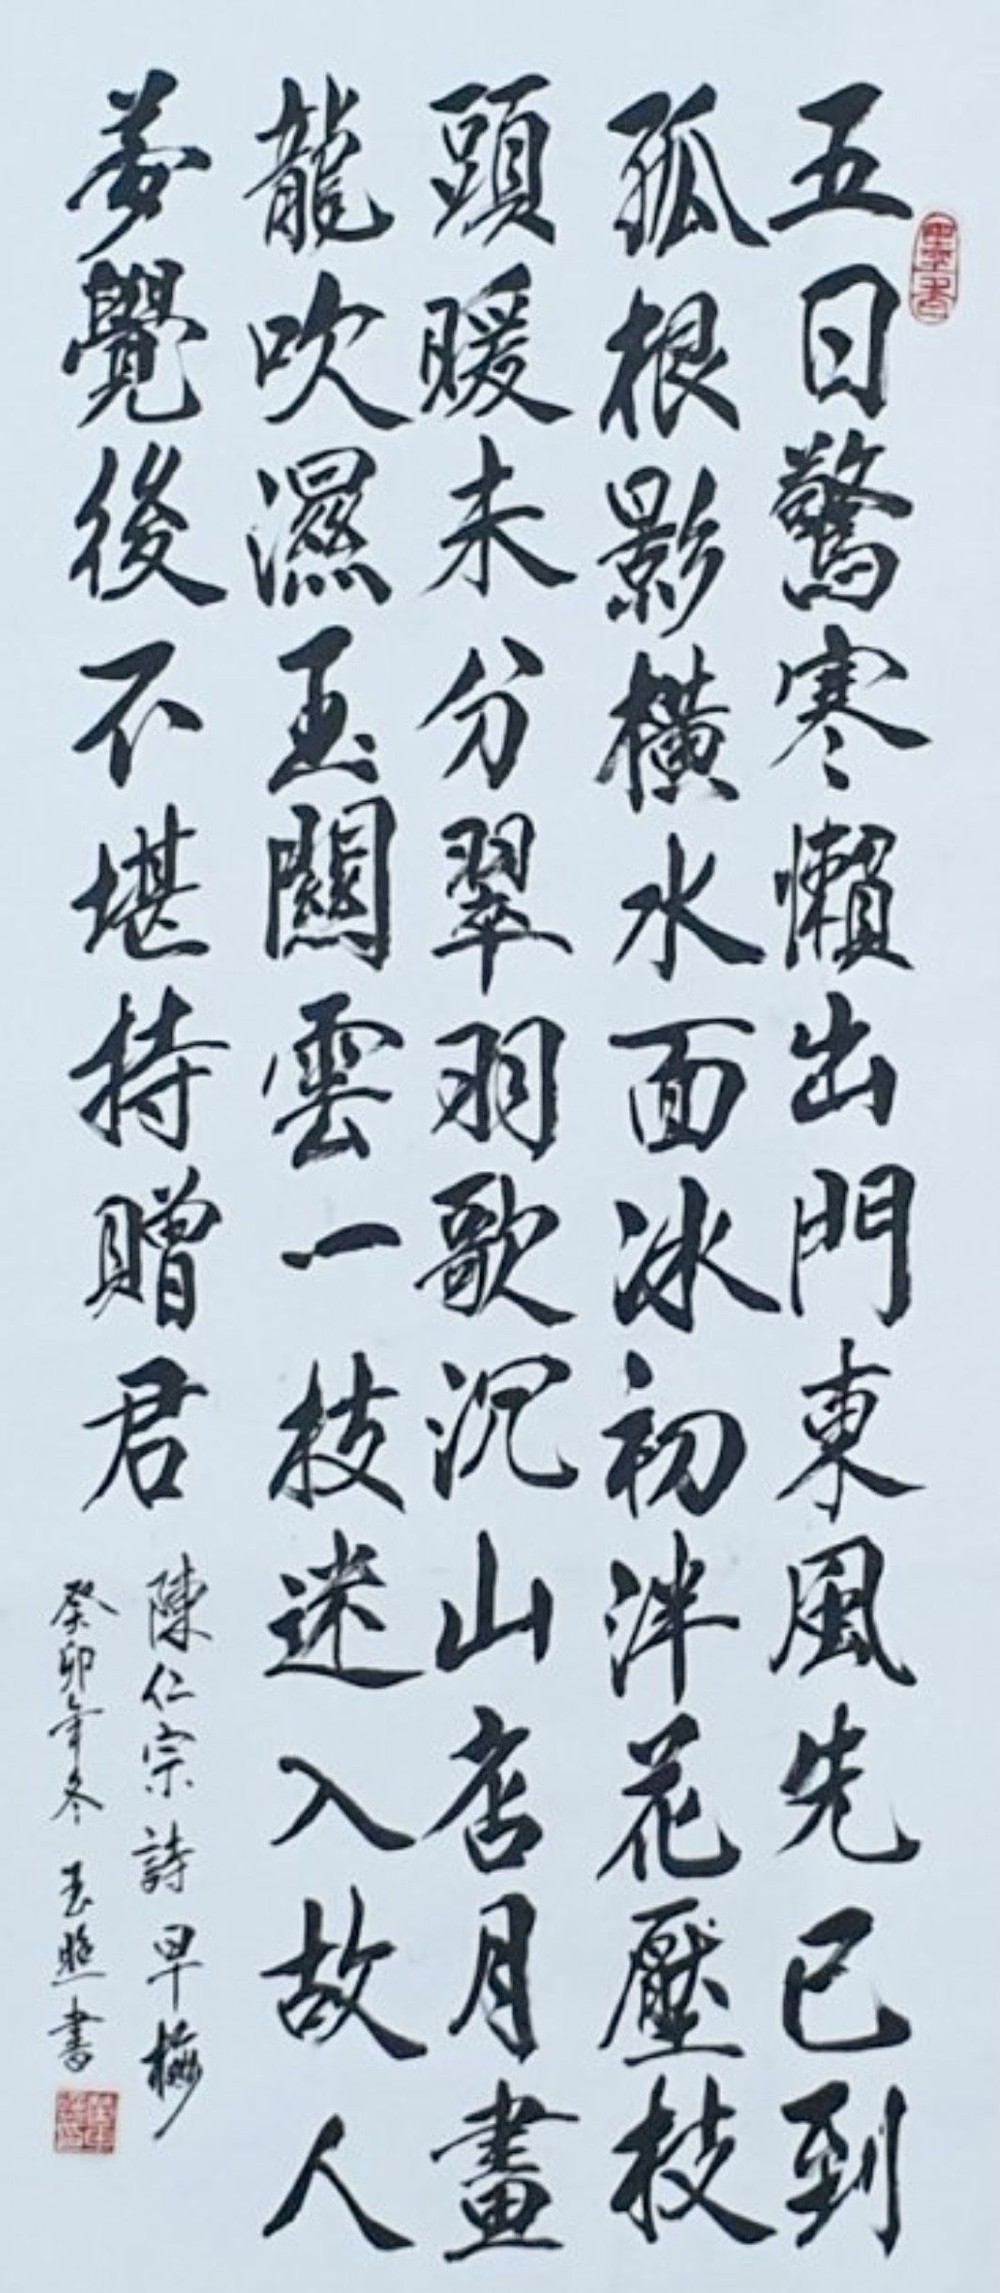 五日驚寒懶出門東風先已到
孤根影橫水面冰初泮花壓枝
頭暖未分翠羽歌沉山店月畫
龍吹濕玉關雲一枝迷入故人
夢覺後不堪持贈君
陳仁宗詩早梅
癸卯年冬玉照書